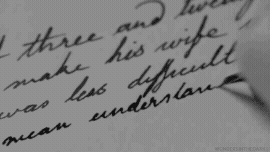 three and twenty
make his wife
was less difficult
mean understan